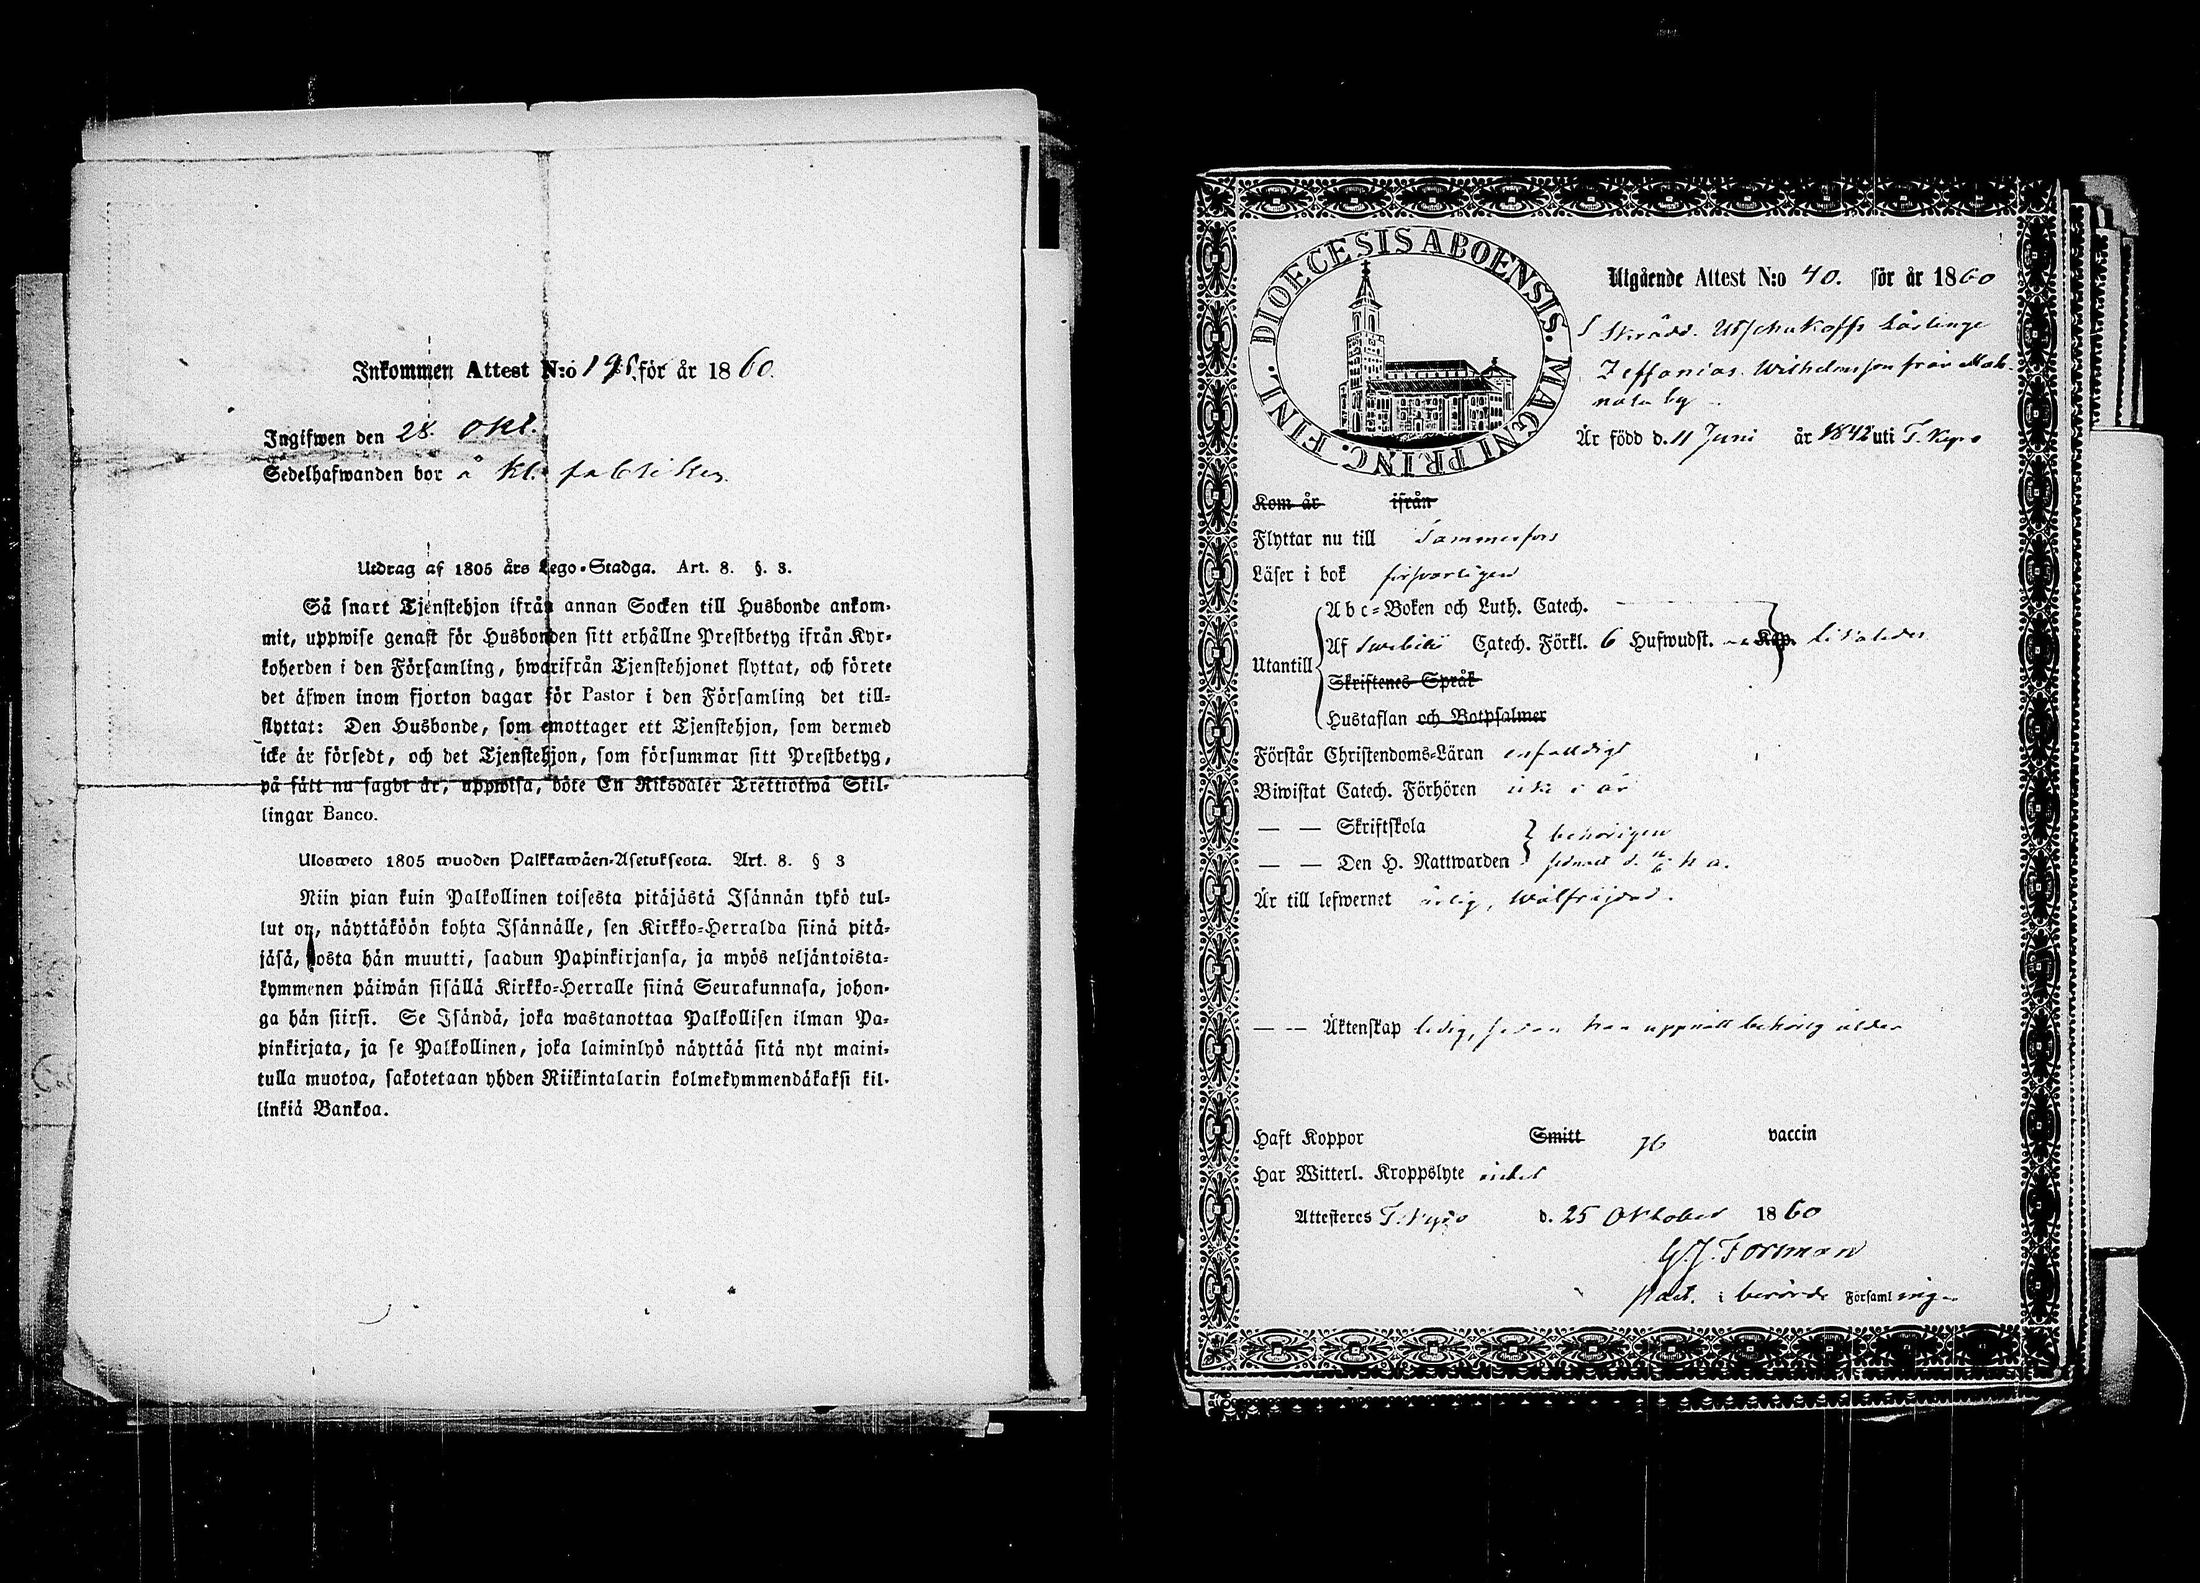 Inkommen Attest N:o 195 för år 1860.
Ingifwen den 28. Okt.
Sedelhafwanden bor å Kl. fabriken
Utdrag af 1805 års Lego-Stadga. Art. 8. §. 3.
Så snart Tjenstehjon ifrån annan Socken till Husbonde ankom-
mit, uppwise genast för Husbonden sitt erhållne Prestbetyg ifrån Kyr-
koherden i den Församling, hwarifrån Tjenstehjonet flyttat, och förete
det äfwen inom fjorton dagar för Pastor i den Församling det till-
flyttat: Den Husbonde, som emottager ett Tjenstehjon, som dermed
icke är försedt, och det Tjenstehjon, som försummar sitt Prestbetyg,
på sätt nu sagdt är, uppwisa, böte En Riksdaler Trettiotwå Skil-
lingar Banco.
Ulosweto 1805 wuoden Palkkawäen-Asetuksesta. Art. 8. § 3
Niin pian kuin Palkollinen toisesta pitäjästä Isännän tykö tul-
lut on, näyttäköön kohta Isännälle, sen Kirkko-Herralda siinä pitä-
jäsä, josta hän muutti, saadun Papinkirjansa, ja myös neljäntoista-
kymmenen päiwän sisällä Kirkko-Herralle siinä Seurakunnasa, johon-
ga hän siirsi. Se Isändä, joka wastanottaa Palkollisen ilman Pa-
pinkirjata, ja se Palkollinen, joka laiminlyö näyttää sitä nyt maini-
tulla muotoa, sakotetaan yhden Riikintalarin kolmekymmendäkaksi kil-
linkiä Bankoa.
DIOECESIS ABOENSIS. MAGNI PRINC. FINL.
Utgående Attest N:o 40. för år 1860
Skrädd. Utschukoffs Lärlinge
Zeffanias Wilhelmsson från Mah-
nala by
Är född d. 11 Juni år 1842 uti T. Kyro
Kom år ifrån
Flyttar nu till Tammerfors
Läser i bok försvarligen
Utantill
Abc-Boken och Luth. Catech.
Af Swebilii Catech. Förkl. 6 Hufwudst. Kap.
Skriftenes Språk
Hustaflan och Botpsalmer
Förstår Christendoms-Läran enfaldigt
Biwistat Catech. Förhören i år
— — Skriftskola behörigen
— — Den H. Nattwarden senast d.
Är till lefwernet ärlig, wälfrejdad.
— — Äktenskap ledig, sedan han uppnått behörig ålder
Haft Koppor Smitt vaccin
Har Witterl. Kroppslyte intet
Attesteres T. Kyro d. 25 Oktober 1860
G. J. Forsman
Past. i berörde Församlingen